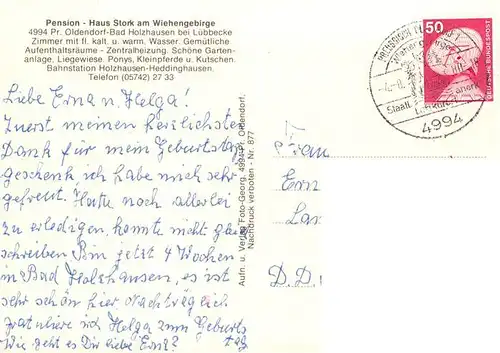 Pension - Haus Stork am Wiehengebirge
4994 Pr. Oldendorf-Bad Holzhausen bei Lübbecke
Zimmer mit fl. kalt. u. warm. Wasser. Gemütliche
Aufenthaltsräume - Zentralheizung. Schöne Garten-
anlage, Liegewiese. Ponys, Kleinpferde u. Kutschen.
Bahnstation Holzhausen-Heddinghausen.
Telefon (05742) 27 33
Liebe Erna u. Helga!
Zuerst meinen herzlichsten
Dank für mein Geburtstags
geschenk ich habe mich sehr
gefreut. Hatte noch allerlei
zu erledigen, konnte nicht
schreiben. Bin jetzt 4 Wochen
in Bad Holzhausen, es ist
sehr schön hier. Nachträglich
gratuliere ich Helga zum Geburts
tag
Wie geht es Dir liebe Erna?
Aufn. u. Verlag Foto-Georg, 4994 Pr. Oldendorf.
Nachdruck verboten - Nr. 877
50
DEUTSCHE BUNDESPOST
Staatl.
4994
Frau
Ern
Lan
D.D